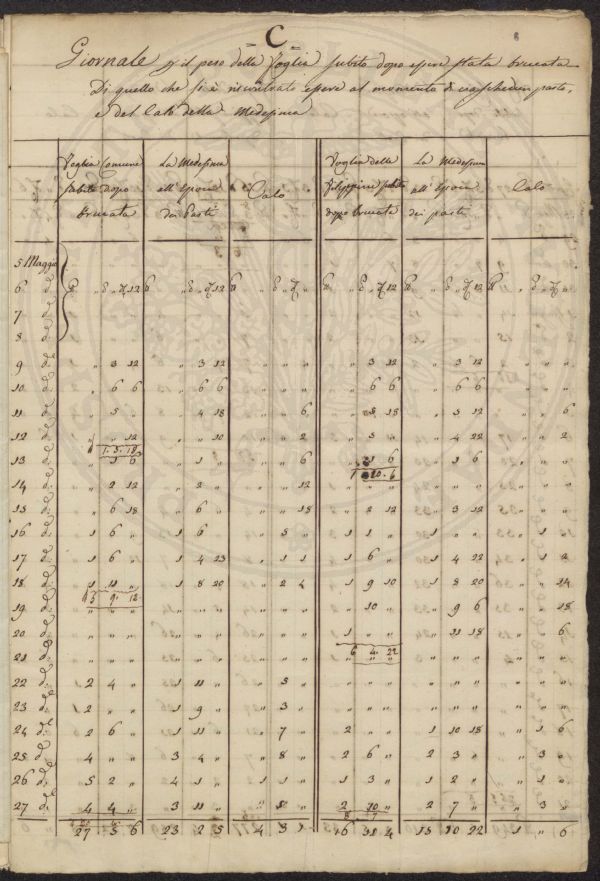 C
Giornale p il peso della Foglia subito dopo essere stata brucata
Di quello che si è riscontrato essere al momento di ciaschedun pasto,
e del Calo della Medesima
Foglia Comune subito dopo brucata | La Medesima all' epoca dei Pasti | Calo | Foglia delle Filippine subito dopo brucata | La Medesima all' epoca dei pasti | Calo
5 Maggio
6 d.º
7 d.º
8 d.º
9 d.º | „ 3 12 | „ 3 12 | „ „ „ | „ 3 12 | „ 3 12 | „ „ „
10 d.º | „ 6 6 | „ 6 6 | „ „ „ | „ 6 6 | „ 6 6 | „ „ „
11 d.º | „ 5 „ | „ 4 18 | „ „ 6 | „ 5 18 | „ 5 12 | „ „ 6
12 d.º | „ „ 12 | „ „ 10 | „ „ 2 | „ 5 „ | „ 4 22 | „ „ 2
1. 3. 18
13 d.º | „ 1 6 | „ 1 „ | „ „ 6 | „ 1 6 | „ 1 6
14 d.º | „ 2 12 | „ 2 „ | „ „ 12 | „ „ „ | „ „ „ | „ „ „
15 d.º | „ 6 18 | „ 6 „ | „ „ 18 | „ 2 12 | „ 3 12 | „ „ „
16 d.º | 1 6 „ | 1 6 | „ 5 „ | 1 1 „ | 1 „ „ | „ 1 „
17 d.º | 1 6 „ | 1 4 23 | „ 1 1 | 1 6 „ | 1 4 22 | „ 1 2
18 d.º | 1 11 „ | 1 8 20 | „ 2 4 | 1 9 10 | 1 8 20 | „ „ 14
5 9. 12
19 d.º | „ „ „ | „ „ „ | „ „ „ | „ 10 „ | „ 9 6 | „ „ 18
20 d.º | „ „ „ | „ „ „ | „ „ „ | 1 „ „ | „ 11 18 | „ „ 6
6 4. 22
21 d.º | „ „ „ | „ „ „ | „ „ „ | „ „ „ | „ „ „ | „ „ „
22 d.º | 2 4 „ | 1 11 „ | „ 5 „ | „ „ „ | „ „ „ | „ „ „
23 d.º | 2 „ „ | 1 9 „ | „ 3 „ | „ „ „ | „ „ „ | „ „ „
24 d.º | 2 6 „ | 1 11 „ | „ 7 „ | 2 „ „ | 1 10 18 | „ 1 6
25 d.º | 4 „ „ | 3 4 „ | „ 8 „ | 2 6 „ | 2 3 „ | „ 3 „
26 d.º | 5 2 „ | 4 1 „ | 1 1 „ | 1 3 „ | 1 2 „ | „ 1 „
27 d.º | 4 4 „ | 3 11 „ | „ 5 „ | 2 10 „ | 2 7 „ | „ 3 „
27 5 6 | 23 2 5 | 4 3 1 | 16 | 15 10 22 | 1 „ 6